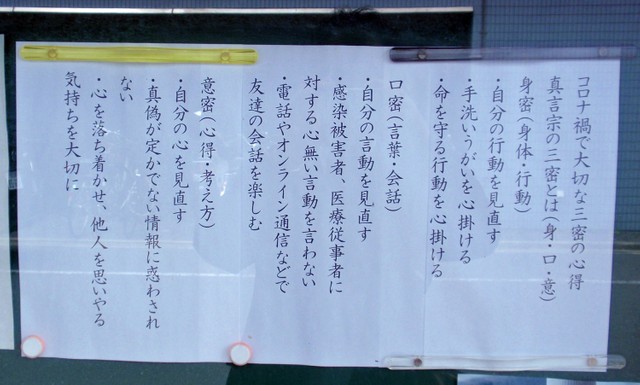 コロナ禍で大切な三密の心得
真言宗の三密とは(身・口・意)
身密(身体・行動)
・自分の行動を見直す
・手洗いうがいを心掛ける
・命を守る行動を心掛ける
口密(言葉・会話)
・自分の言動を見直す
・感染被害者、医療従事者に
対する心無い言動を言わない
・電話やオンライン通信などで
友達の会話を楽しむ
意密(心得・考え方)
・自分の心を見直す
・真偽が定かでない情報に惑わされ
ない
・心を落ち着かせ、他人を思いやる
気持ちを大切に